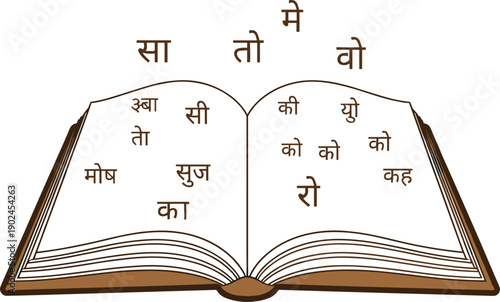 मे
सा तो वो
अ्बा सी
तेा
मोष सुज
का
की यो
को को को
कह
रो
Adobe Stock | #1902454263